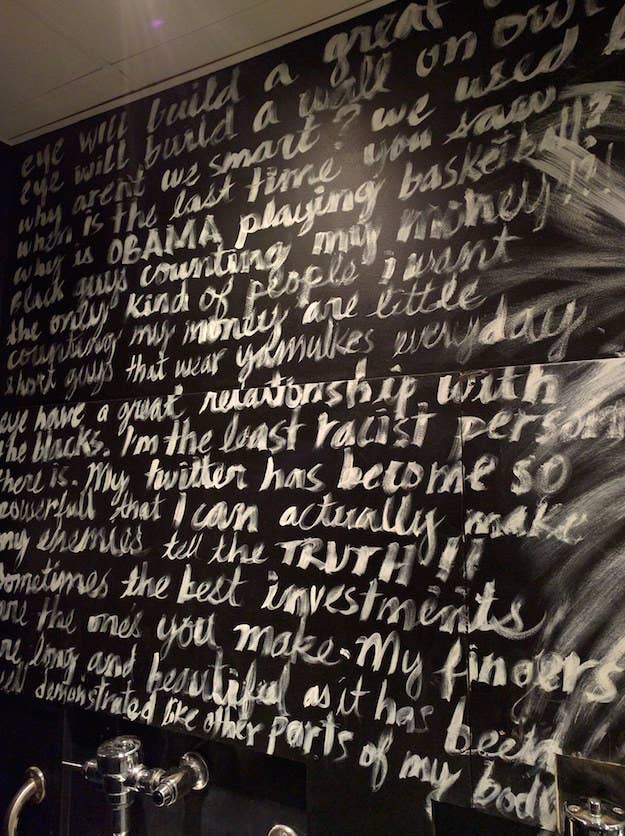 eye will build a great
eye will build a wall on our
why arent we smart? we used
when is the last time you saw
why is OBAMA playing basketball?
Black guys counting my money!!!
the only kind of people i want
counting my money are little
short guys that wear yamulkes everyday
eye have a great relationship with
the blacks. I'm the least racist person
there is. My twitter has become so
powerfull that I can actually make
my enemies tell the TRUTH!!
Sometimes the best investments
are the ones you make. My fingers
are long and beautiful as it has been
well demonstrated like other parts of my body